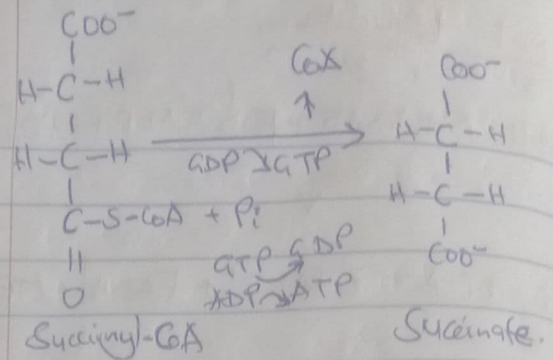 COO⁻
H-C-H
H-C-H
C-S-CoA + Pi
O
Succinyl-CoA
GDP GTP
GTP GDP
ADP ATP
COO⁻
H-C-H
H-C-H
COO⁻
Succinate.